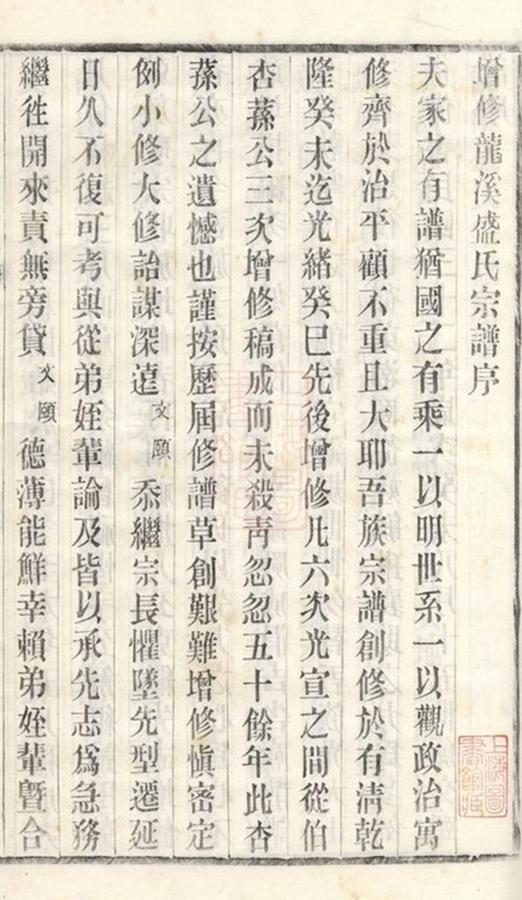 增修龍溪盛氏宗譜序
夫家之有譜猶國之有乘一以明世系一以觀政治寓
修齊於治平顧不重且大耶吾族宗譜創修於有淸乾
隆癸未迄光緒癸巳先後增修凡六次光宣之間從伯
杏蓀公三次增修稿成而未殺靑忽忽五十餘年此杏
蓀公之遺憾也謹按歷屆修譜草創艱難增修愼密定
例小修大修詒謀深遠文頤忝繼宗長懼墜先型遷延
日久不復可考與從弟姪輩論及皆以承先志爲急務
繼徃開來責無旁貸文頤德薄能鮮幸賴弟姪輩曁合
上海圖書館藏